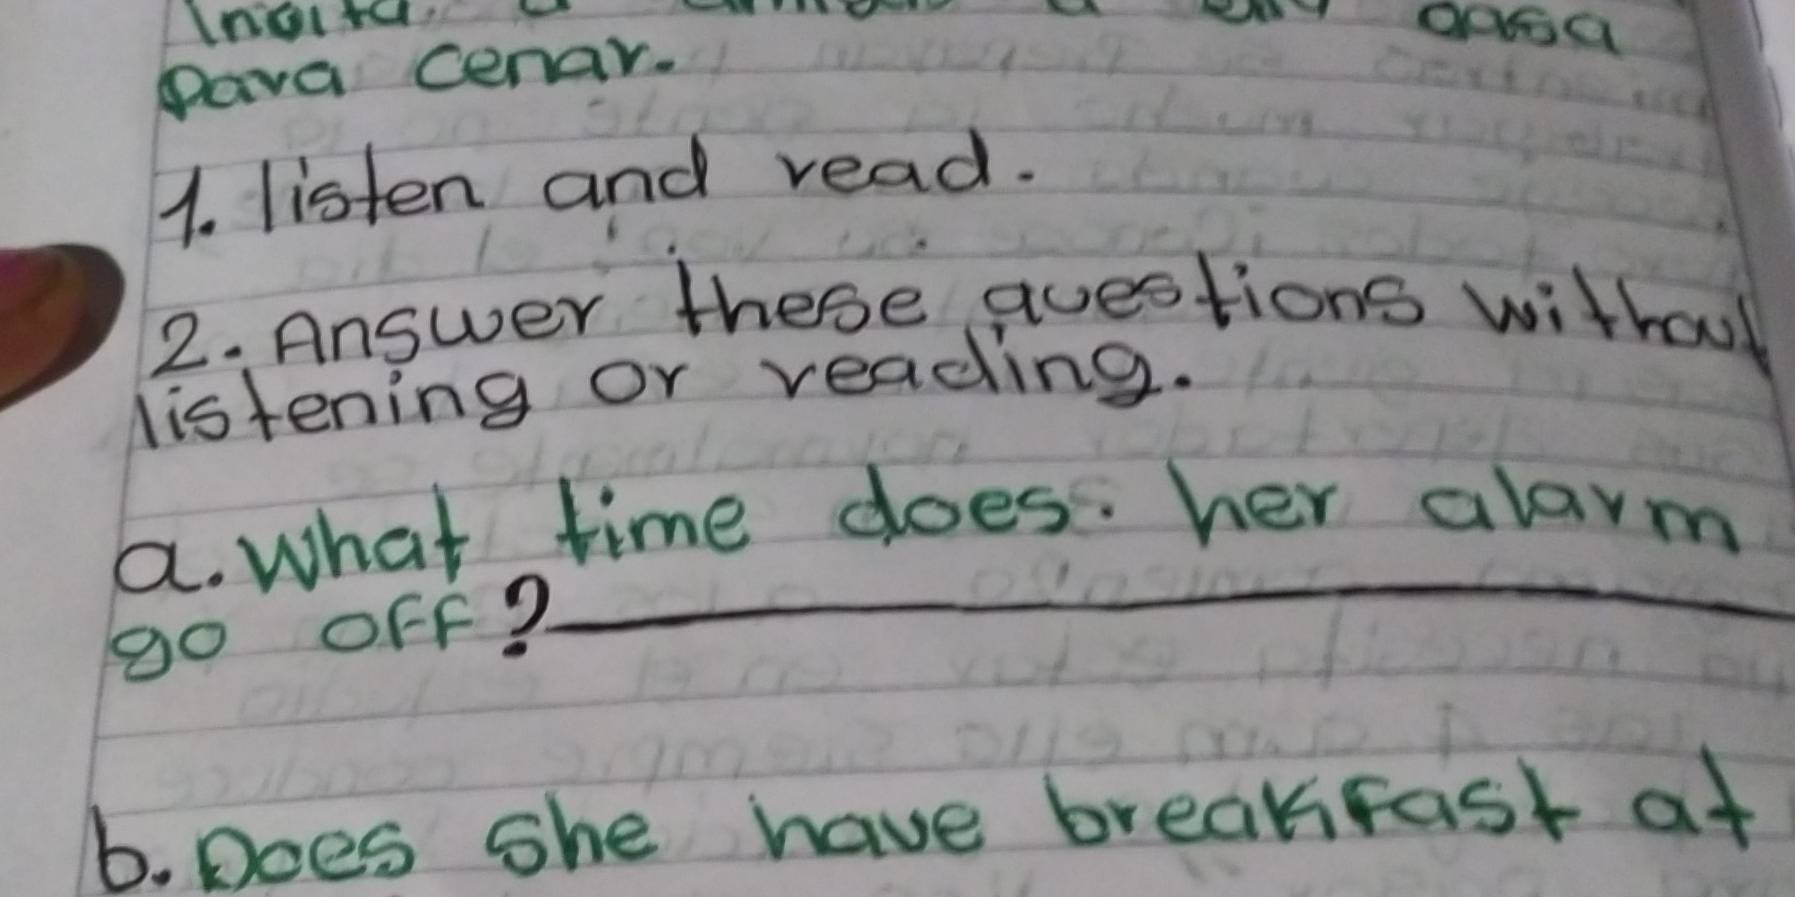 Invita a amigos a casa
para cenar.
1. listen and read.
2. Answer these questions without
listening or reading.
a. What time does her alarm
go off?
b. Does she have breakfast at